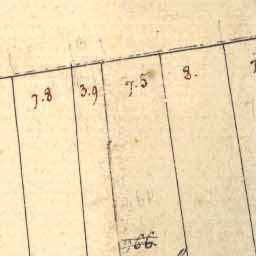 7.8 3.9 7.5 8.
66